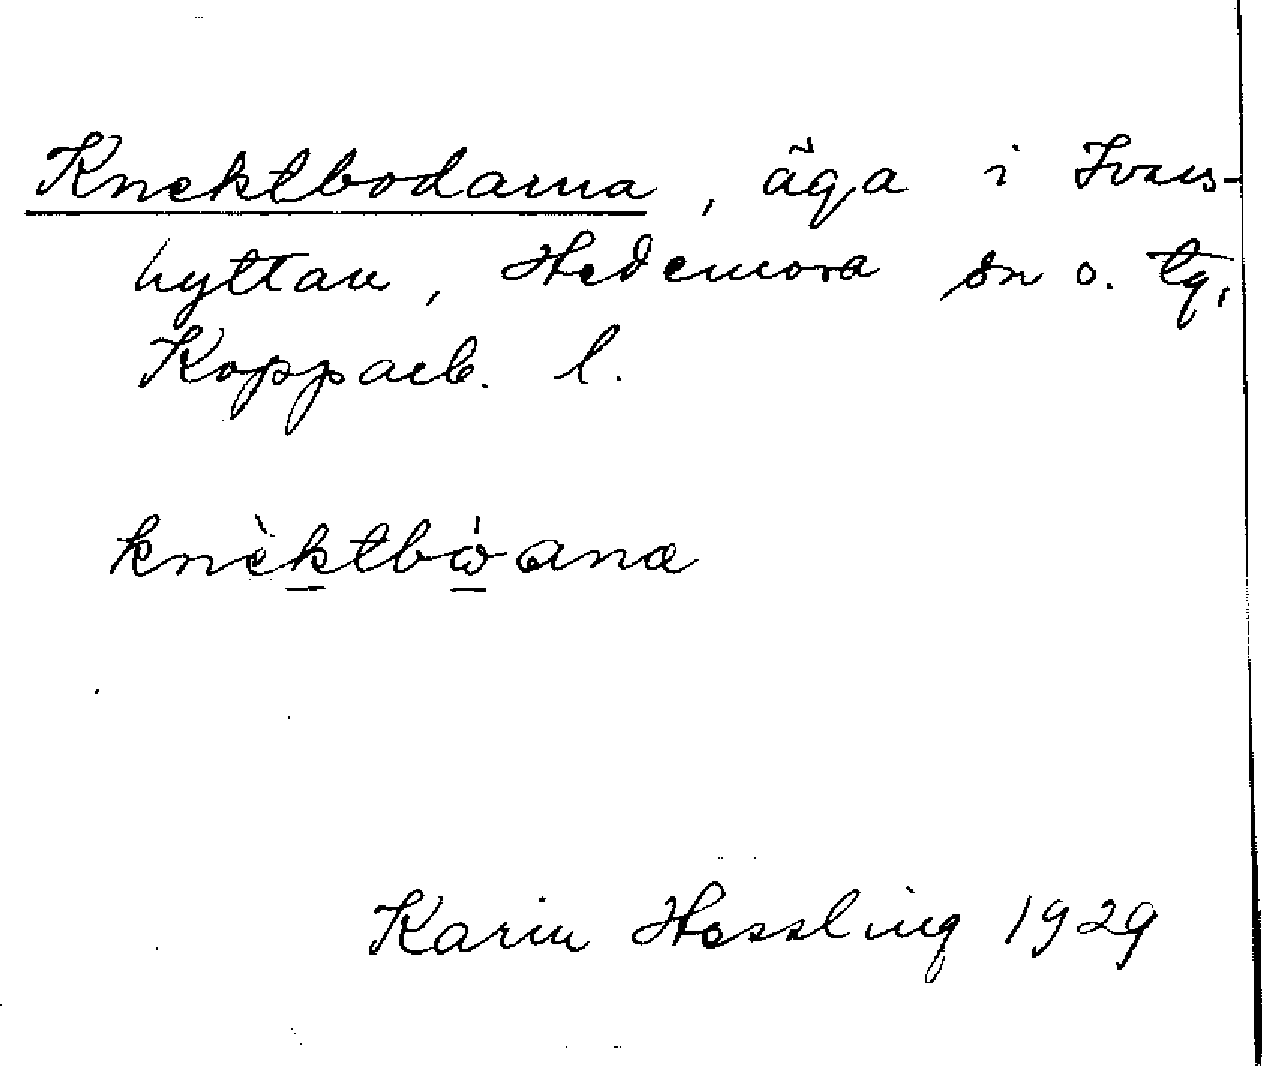 Knektbodarna, äga i Ivars-
hyttan, Hedemora sn o. tg,
Kopparb. l.
knèktbὼana
Karin Hessling 1929